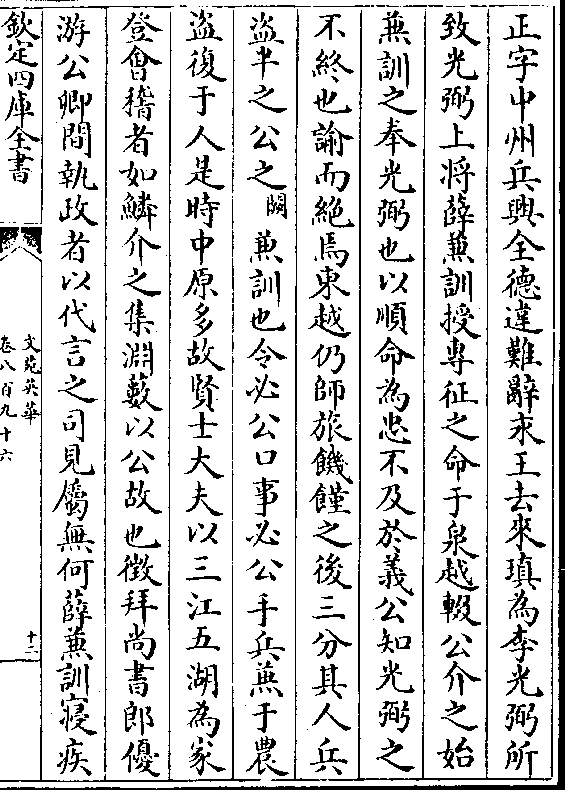 正字中州兵興全德違難辭永王去來瑱為李光弼所
致光弼上將薛兼訓授專征之命于泉越輟公介之始
兼訓之奉光弼也以順命為忠不及於義公知光弼之
不終也諭而絕焉東越仍師旅饑饉之後三分其人兵
盜半之公之闕兼訓也令必公口事必公手兵兼于農
盜復于人是時中原多故賢士大夫以三江五湖為家
登會稽者如鱗介之集淵藪以公故也徵拜尚書郎優
游公卿間執政者以代言之司見屬無何薛兼訓寢疾
欽定四庫全書
文苑英華
卷八百九十六
十二